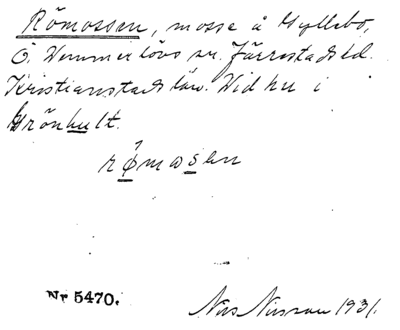 Römossen, mosse å Gyllebo,
Ö. Vemmerlövs sn. Järrestads hd.
Kristianstads län. Vid hu i
Grönhult.
rømosen
Nr 5470. Nils Nilsson 1931.